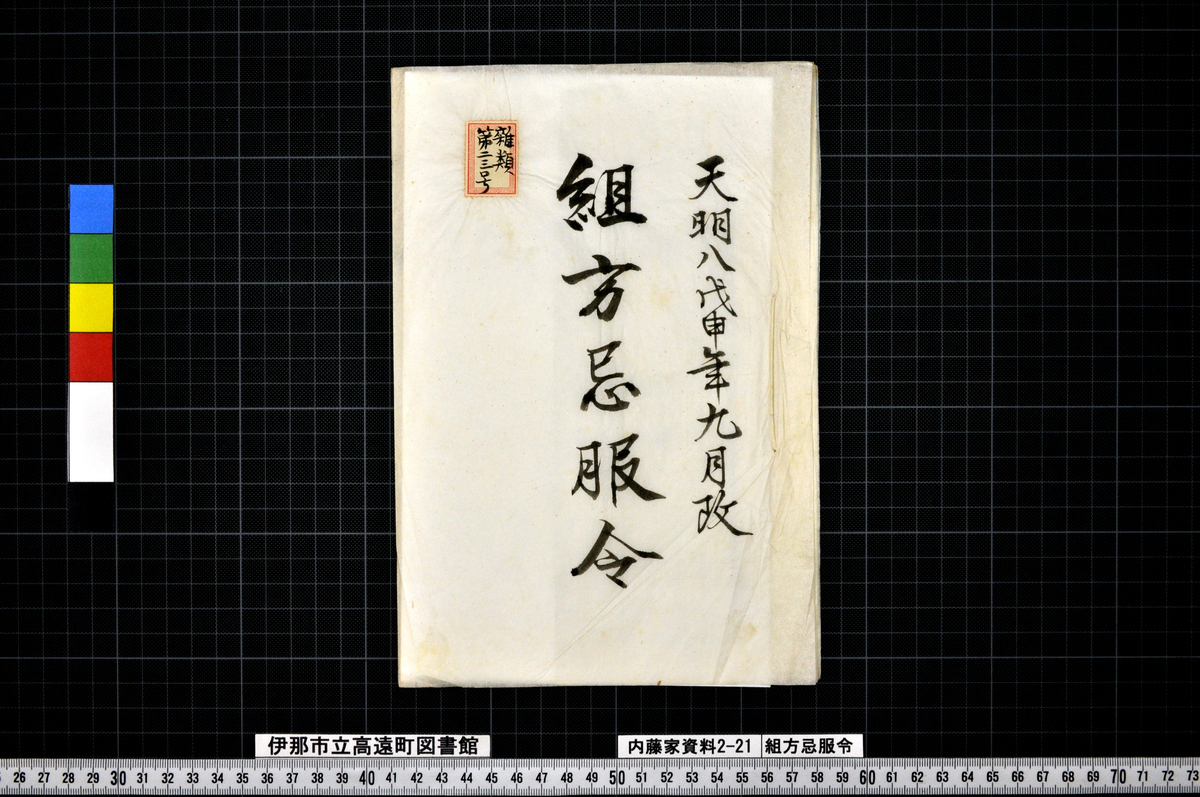 天明八戊申年九月改
組方忌服令
雑類
第二三号
伊那市立高遠町図書館
内藤家資料2-21
組方忌服令
26 27 28 29 30 31 32 33 34 35 36 37 38 39 40 41 42 43 44 45 46 47 48 49 50 51 52 53 54 55 56 57 58 59 60 61 62 63 64 65 66 67 68 69 70 71 72 73